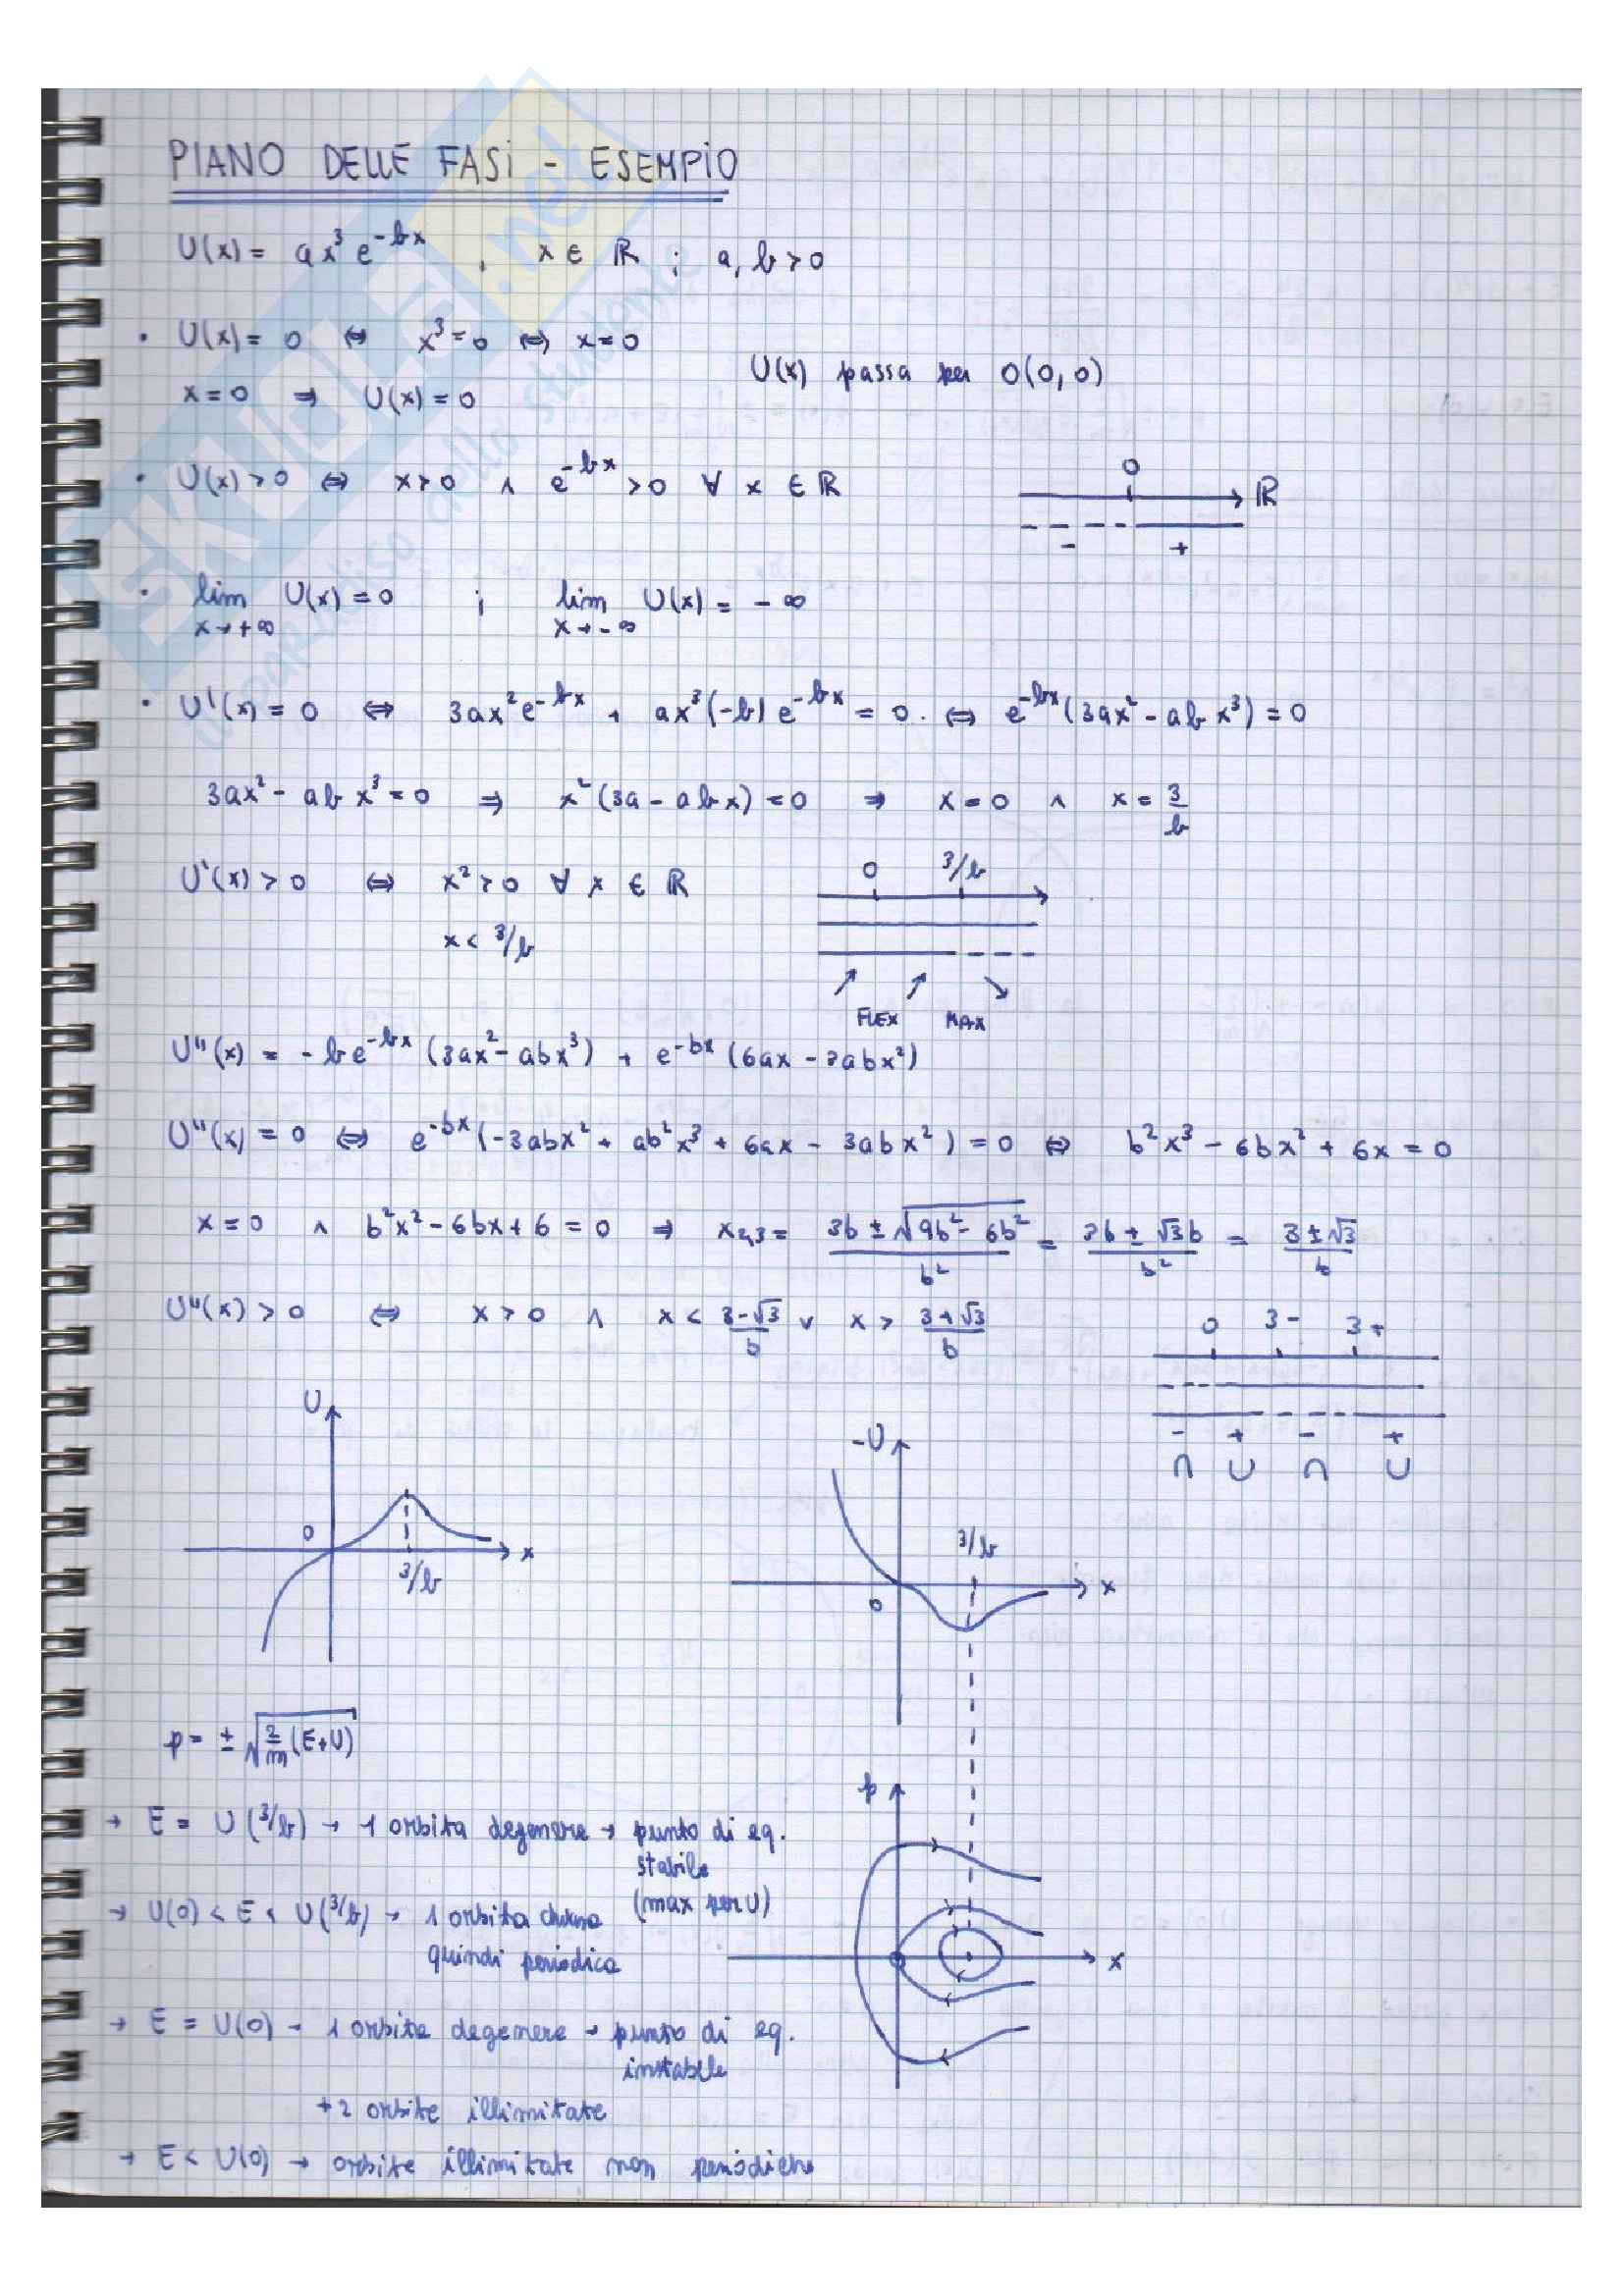 PIANO DELLE FASI - ESEMPIO
U(x) = ax³e^{-bx} , x ∈ ℝ ; a, b > 0
• U(x) = 0 ⇔ x³ = 0 ⇔ x = 0
x = 0 ⇒ U(x) = 0
U(x) passa per O(0,0)
• U(x) > 0 ⇔ x > 0 ∧ e^{-bx} > 0 ∀ x ∈ ℝ
0
ℝ
- +
• lim U(x) = 0 ; lim U(x) = -∞
x→+∞ x→-∞
• U'(x) = 0 ⇔ 3ax²e^{-bx} + ax³(-b)e^{-bx} = 0. ⇔ e^{-bx}(3ax² - abx³) = 0
3ax² - abx³ = 0 ⇒ x²(3a - abx) = 0 ⇒ x = 0 ∧ x = 3/b
U'(x) > 0 ⇔ x² > 0 ∀ x ∈ ℝ
0 3/b
x < 3/b
FLEX MAX
U''(x) = -be^{-bx}(3ax² - abx³) + e^{-bx}(6ax - 3abx²)
U''(x) = 0 ⇔ e^{-bx}(-3abx² + ab²x³ + 6ax - 3abx²) = 0 ⇔ b²x³ - 6bx² + 6x = 0
x = 0 ∧ b²x² - 6bx + 6 = 0 ⇒ x₂,₃ = (3b ± √(9b² - 6b²))/b² = (3b ± √3b)/b² = (3 ± √3)/b
U''(x) > 0 ⇔ x > 0 ∧ x < (3-√3)/b ∨ x > (3+√3)/b
0 3- 3+
- + - +
∩ ∪ ∩ ∪
U
0
3/b
x
-U
0
3/b
x
p = ± √(2/m (E+U))
→ E = U(3/b) → 1 orbita degenere → punto di eq.
stabile
(max per U)
→ U(0) < E < U(3/b) → 1 orbita chiusa
quindi periodica
→ E = U(0) → 1 orbita degenere → punto di eq.
instabile
+2 orbite illimitate
→ E < U(0) → orbite illimitate non periodiche
p
x
SKUOLA.net
il paradiso dello studente